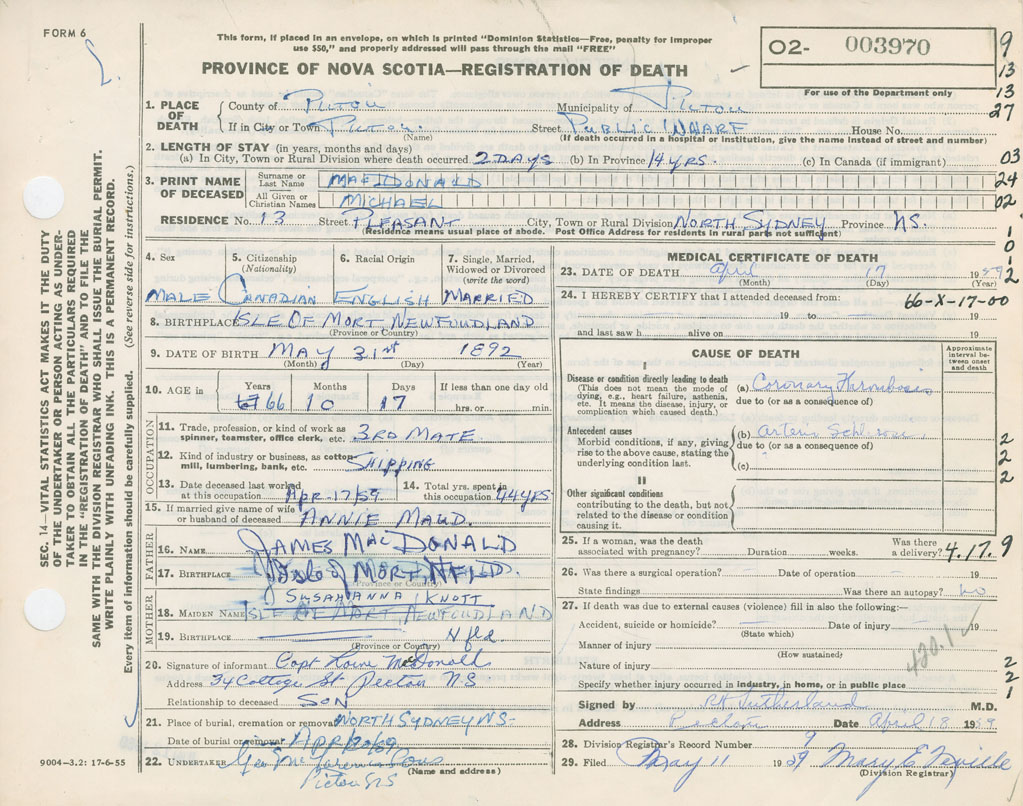 FORM 6
This form, if placed in an envelope, on which is printed "Dominion Statistics—Free, penalty for improper
use $50," and properly addressed will pass through the mail "FREE"
PROVINCE OF NOVA SCOTIA—REGISTRATION OF DEATH
O2- 003970
For use of the Department only
9
13
13
27
03
24
02
1
0
1
2
1. PLACE OF DEATH { County of Pictou Municipality of Pictou
If in City or Town Pictou. (Name) Street Public Wharf House No.
(If death occurred in a hospital or institution, give the name instead of street and number)
2. LENGTH OF STAY (in years, months and days)
(a) In City, Town or Rural Division where death occurred 2 DAYS (b) In Province 14 yrs. (c) In Canada (if immigrant)
3. PRINT NAME OF DECEASED Surname or Last Name MacDONALD
All Given or Christian Names MICHAEL
RESIDENCE No. 13 Street PLEASANT City, Town or Rural Division NORTH SYDNEY Province NS.
(Residence means usual place of abode. Post Office Address for residents in rural parts not sufficient)
4. Sex 5. Citizenship (Nationality) 6. Racial Origin 7. Single, Married, Widowed or Divorced (write the word)
MALE CANADIAN ENGLISH MARRIED
8. BIRTHPLACE ISLE OF MORT NEWFOUDLAND
(Province or Country)
9. DATE OF BIRTH MAY 31st 1892
(Month) (Day) (Year)
10. AGE in Years Months Days If less than one day old
66 10 17 hrs. or min.
OCCUPATION
11. Trade, profession, or kind of work as spinner, teamster, office clerk, etc. 3RD MATE
12. Kind of industry or business, as cotton mill, lumbering, bank, etc. SHIPPING
13. Date deceased last worked at this occupation Apr-17/59 14. Total yrs. spent in this occupation 44 YRS
15. If married give name of wife or husband of deceased ANNIE MAUD.
FATHER
16. NAME JAMES MACDONALD
17. BIRTHPLACE Isle of MORT NFLD.
(Province or Country)
MOTHER
SUSAHANNA KNOTT
18. MAIDEN NAME ISLE OF MORT, NEWFOUNDLAND
19. BIRTHPLACE Nfld
(Province or Country)
20. Signature of informant Capt McDonald
Address 34 College St Pictou N.S
Relationship to deceased SON
21. Place of burial, cremation or removal NORTH SYDNEY NS-
Date of burial or removal Apr
22. UNDERTAKER Geo Sons
(Name and address)
Pictou NS
MEDICAL CERTIFICATE OF DEATH
23. DATE OF DEATH April 17 1959
(Month) (Day) (Year)
24. I HEREBY CERTIFY that I attended deceased from: 66-X-17-00
19 to 19
and last saw h alive on 19
CAUSE OF DEATH
Approximate interval between onset and death
I
Disease or condition directly leading to death
(This does not mean the mode of dying, e.g., heart failure, asthenia, etc. It means the disease, injury, or complication which caused death.)
(a) Coronary Thrombosis
due to (or as a consequence of)
Antecedent causes
Morbid conditions, if any, giving rise to the above cause, stating the underlying condition last.
(b) Arterio
due to (or as a consequence of)
(c)
2
2
2
II
Other significant conditions
contributing to the death, but not related to the disease or condition causing it.
25. If a woman, was the death associated with pregnancy? Duration weeks. Was there a delivery?
4.17.9
26. Was there a surgical operation? Date of operation 19
State findings Was there an autopsy? no
27. If death was due to external causes (violence) fill in also the following:—
Accident, suicide or homicide? Date of injury 19
(State which)
Manner of injury
(How sustained)
420.1
Nature of injury
Specify whether injury occurred in industry, in home, or in public place
2
2
1
Signed by Sutherland M.D.
Address Date April 18 1959
28. Division Registrar's Record Number 9
29. Filed May 11 1959 Mary E Neville
(Division Registrar)
SEC. 14—VITAL STATISTICS ACT MAKES IT THE DUTY
OF THE UNDERTAKER OR PERSON ACTING AS UNDER-
TAKER TO OBTAIN ALL THE PARTICULARS REQUIRED
IN THE "REGISTRATION OF DEATH" AND TO FILE THE
SAME WITH THE DIVISION REGISTRAR WHO SHALL ISSUE THE BURIAL PERMIT.
WRITE PLAINLY WITH UNFADING INK. THIS IS A PERMANENT RECORD.
Every item of information should be carefully supplied. (See reverse side for instructions.)
9004—3.2: 17-6-55